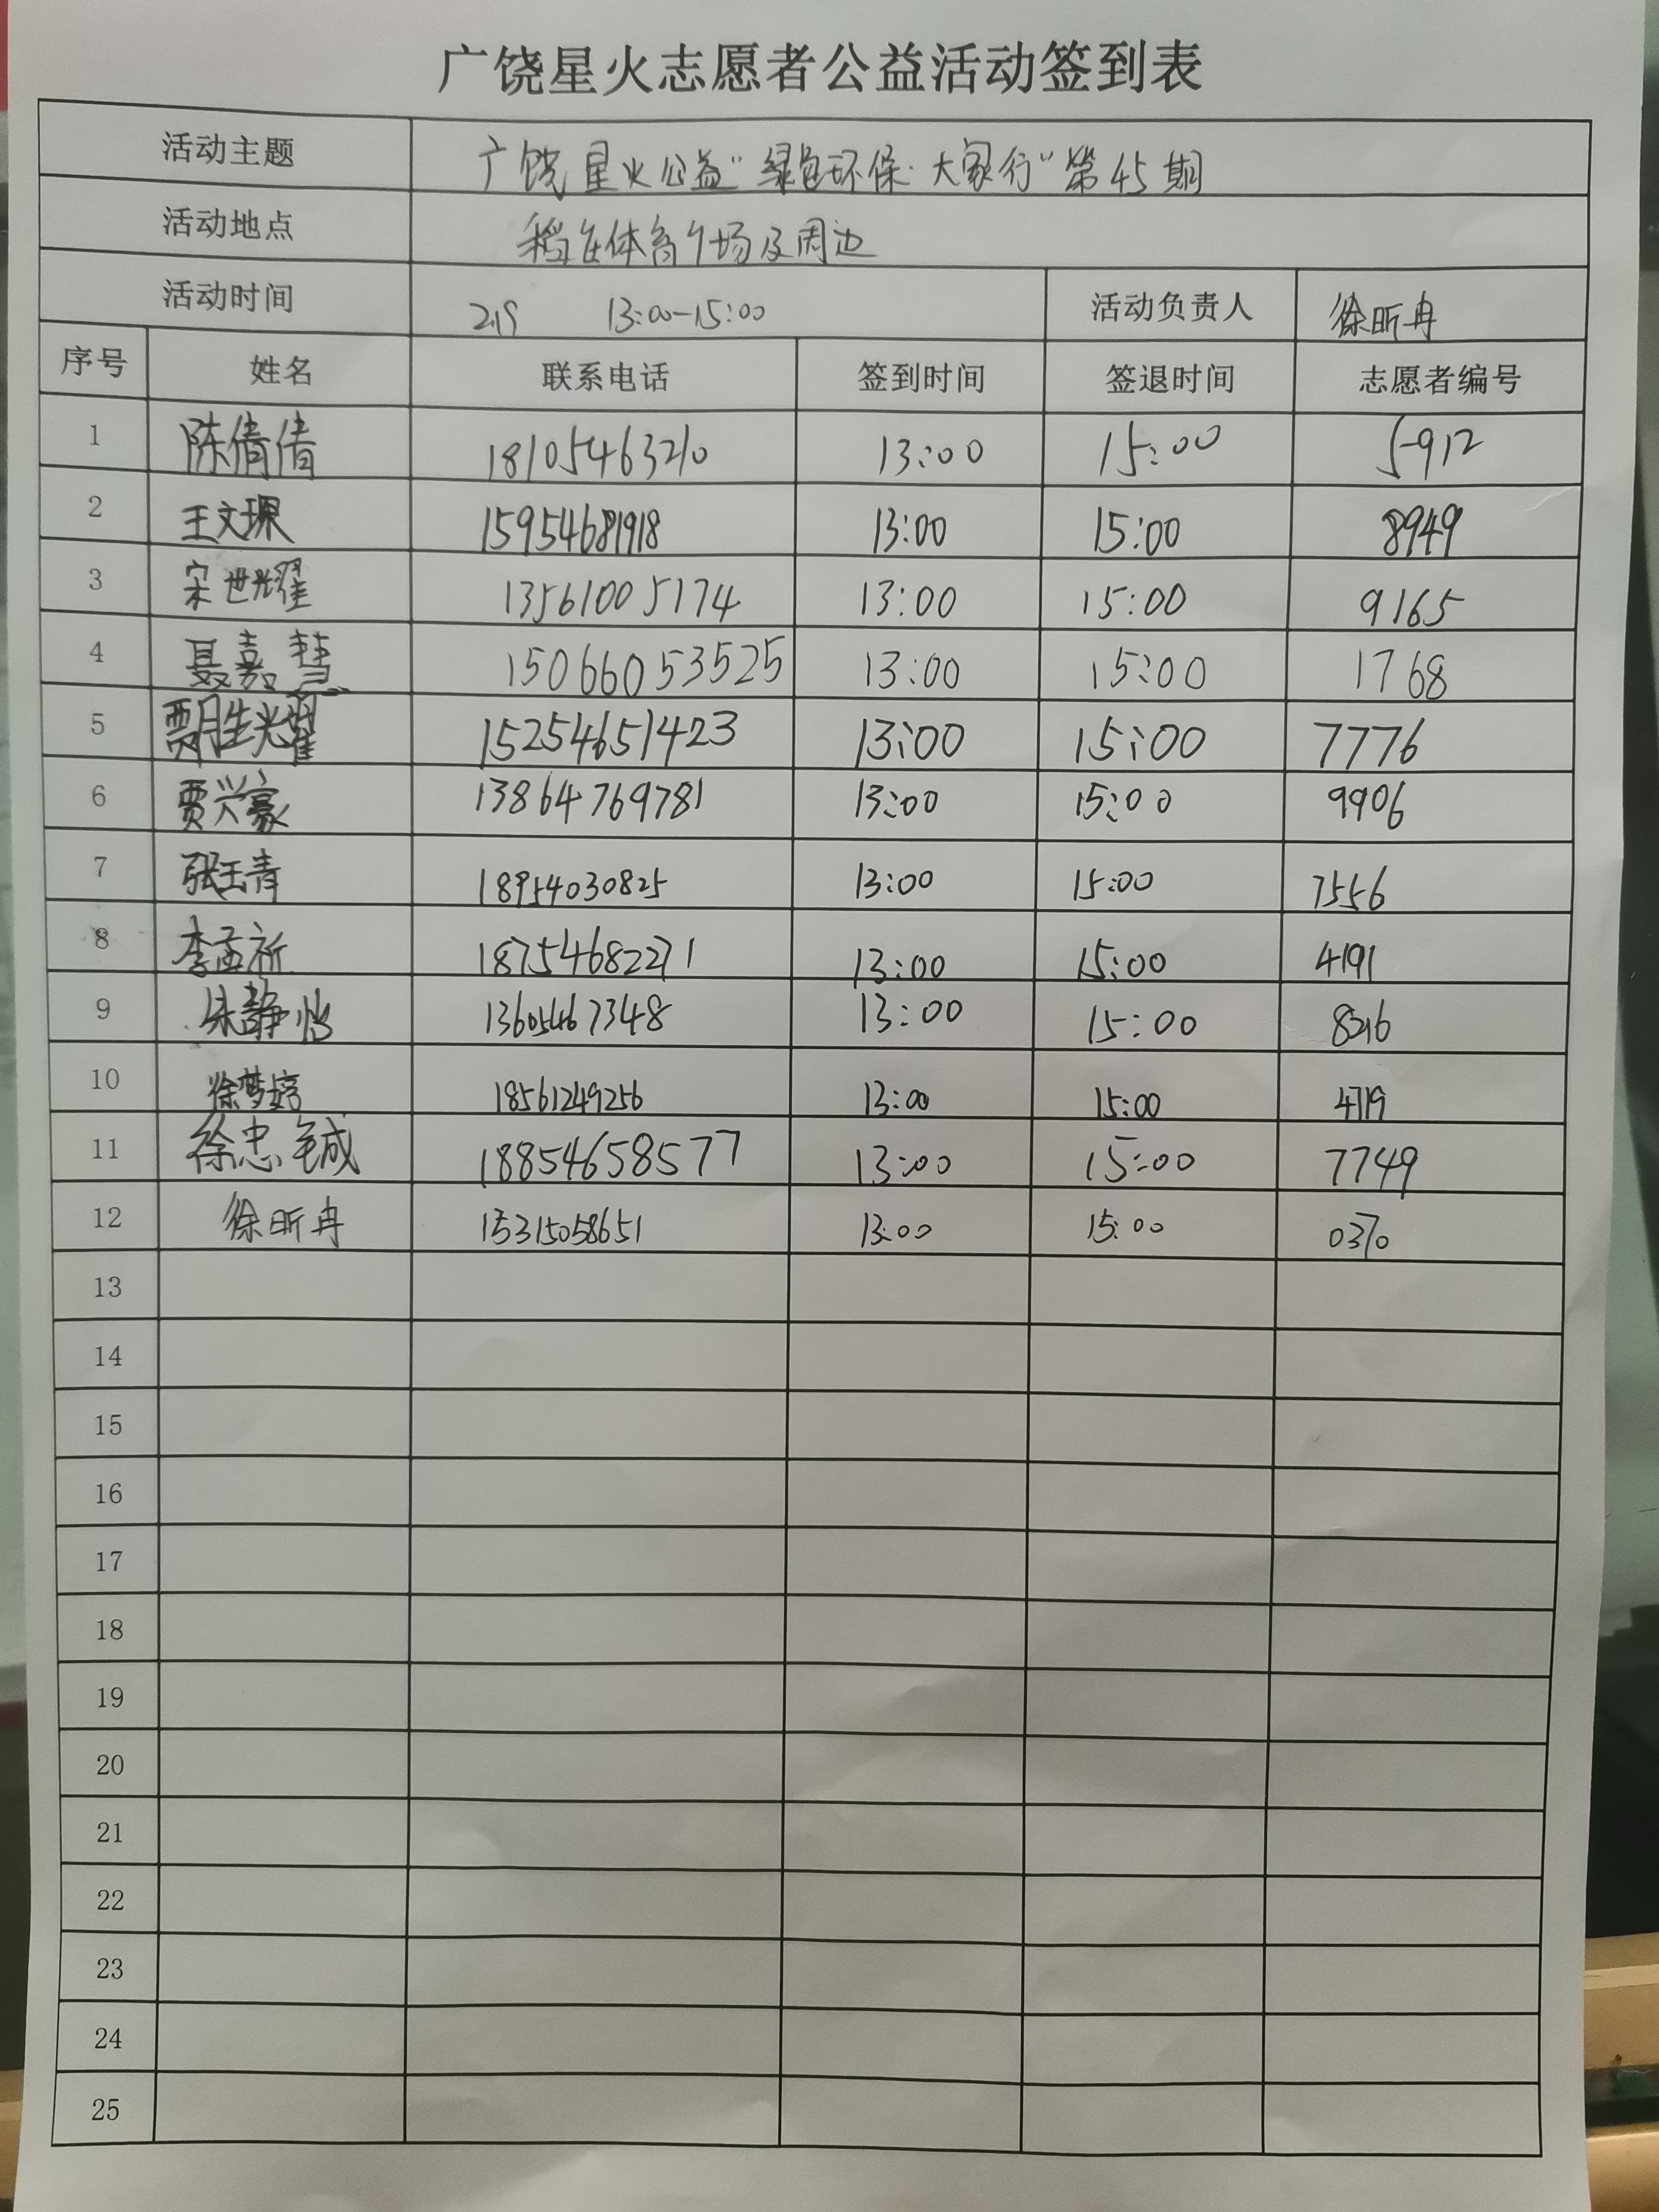 广饶星火志愿者公益活动签到表
活动主题 广饶星火公益"绿色环保·大家行"第45期
活动地点 稻庄体育广场及周边
活动时间 2.19 13:00-15:00 活动负责人 徐昕冉
序号 姓名 联系电话 签到时间 签退时间 志愿者编号
1 陈倩倩 18105463210 13:00 15:00 5912
2 王文 15954681918 13:00 15:00 8949
3 宋世耀 13561005174 13:00 15:00 9165
4 聂嘉慧 15066053525 13:00 15:00 1768
5 贾胜耀 15254651423 13:00 15:00 7776
6 贾兴豪 13864769781 13:00 15:00 9906
7 张玉青 18954030825 13:00 15:00 7556
8 李孟祈 18754682271 13:00 15:00 4191
9 朱静怡 13605467348 13:00 15:00
10 徐梦婷 18561249256 13:00 15:00 4719
11 徐忠铖 18854658577 13:00 15:00 7749
12 徐昕冉 15315058651 13:00 15:00 0370
13
14
15
16
17
18
19
20
21
22
23
24
25